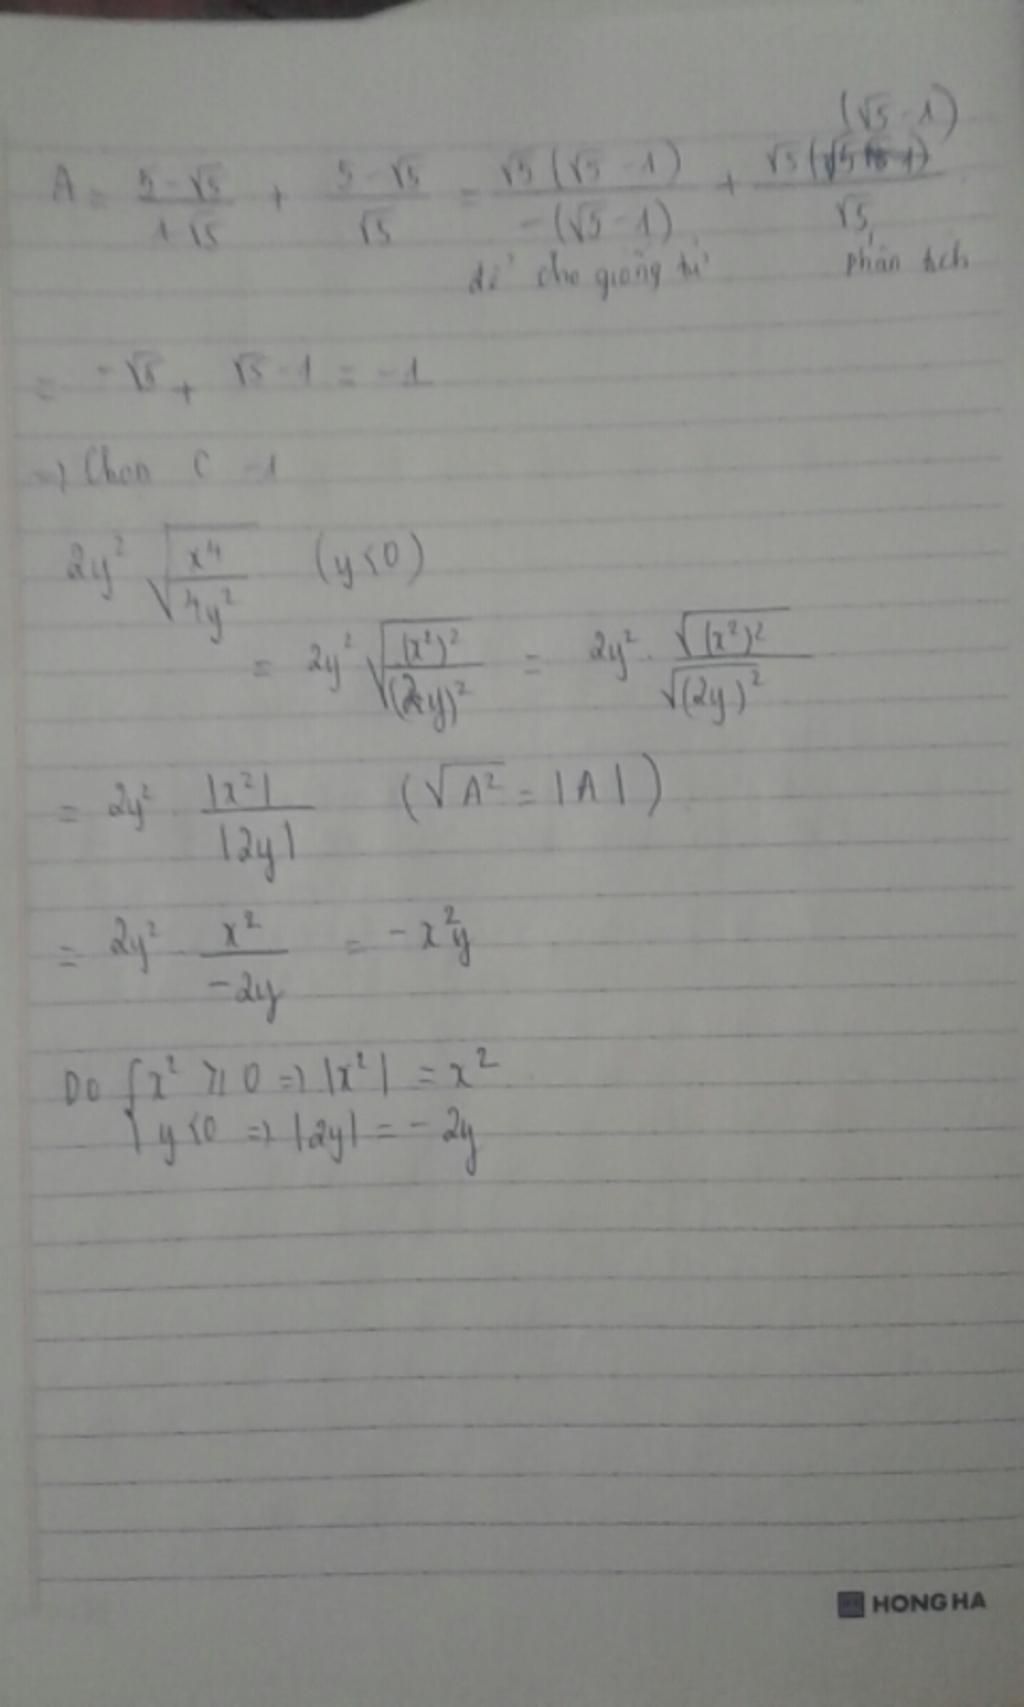 A = \frac{5-√5}{1-√5} + \frac{5-√5}{√5} = \frac{√5(√5-1)}{-(√5-1)} + \frac{√5(√5-1)}{√5}
để cho giống tử phân tích
= -√5 + √5-1 = -1
=> Chọn C -1
2y² √\frac{x⁴}{4y²} (y<0)
= 2y² √\frac{(x²)²}{(2y)²} = 2y² . \frac{√(x²)²}{√(2y)²}
= 2y² . \frac{|x²|}{|2y|} (√A² = |A|)
= 2y² . \frac{x²}{-2y} = -x²y
Do { x² ≥ 0 => |x²| = x²
y<0 => |2y| = -2y
HONG HA